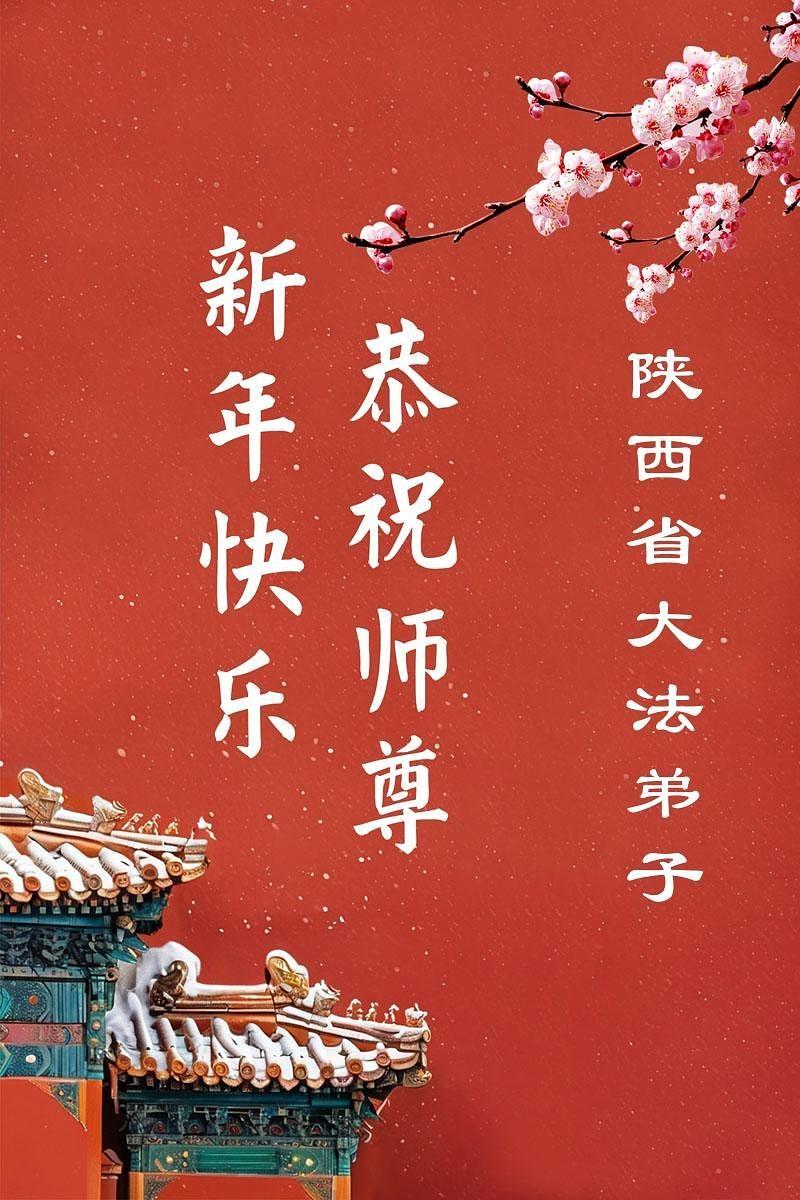 陕西省大法弟子
恭祝师尊
新年快乐